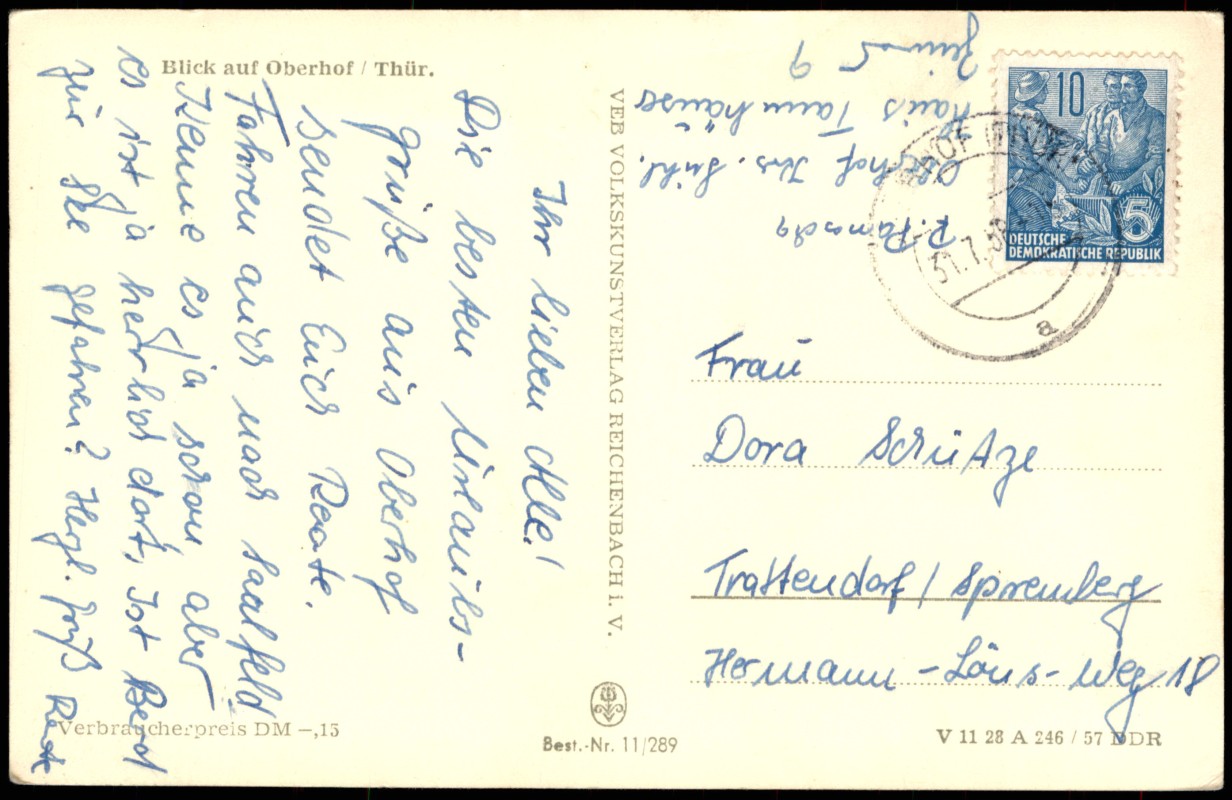 Blick auf Oberhof / Thür.
Ihr lieben Alle!
Die besten Urlaubs-
grüße aus Oberhof
sendet Euch Renate.
Fahren auch nach Saalfeld
Kenne es ja schon, aber
es ist ja herrlich dort, Ist Bernd
zur See gefahren? Herzl. Gruß Renate
Verbraucherpreis DM –,15
VEB VOLKSKUNSTVERLAG REICHENBACH i. V.
Best.-Nr. 11/289
Oberhof Krs. Suhl.
Haus Tannhäuser
Zimmer
9
10
5
DEUTSCHE
DEMOKRATISCHE REPUBLIK
31.7.58
a
Frau
Dora Schütze
Trattendorf / Spremberg
Hermann - Löns - Weg 18
V 11 28 A 246 / 57 DDR